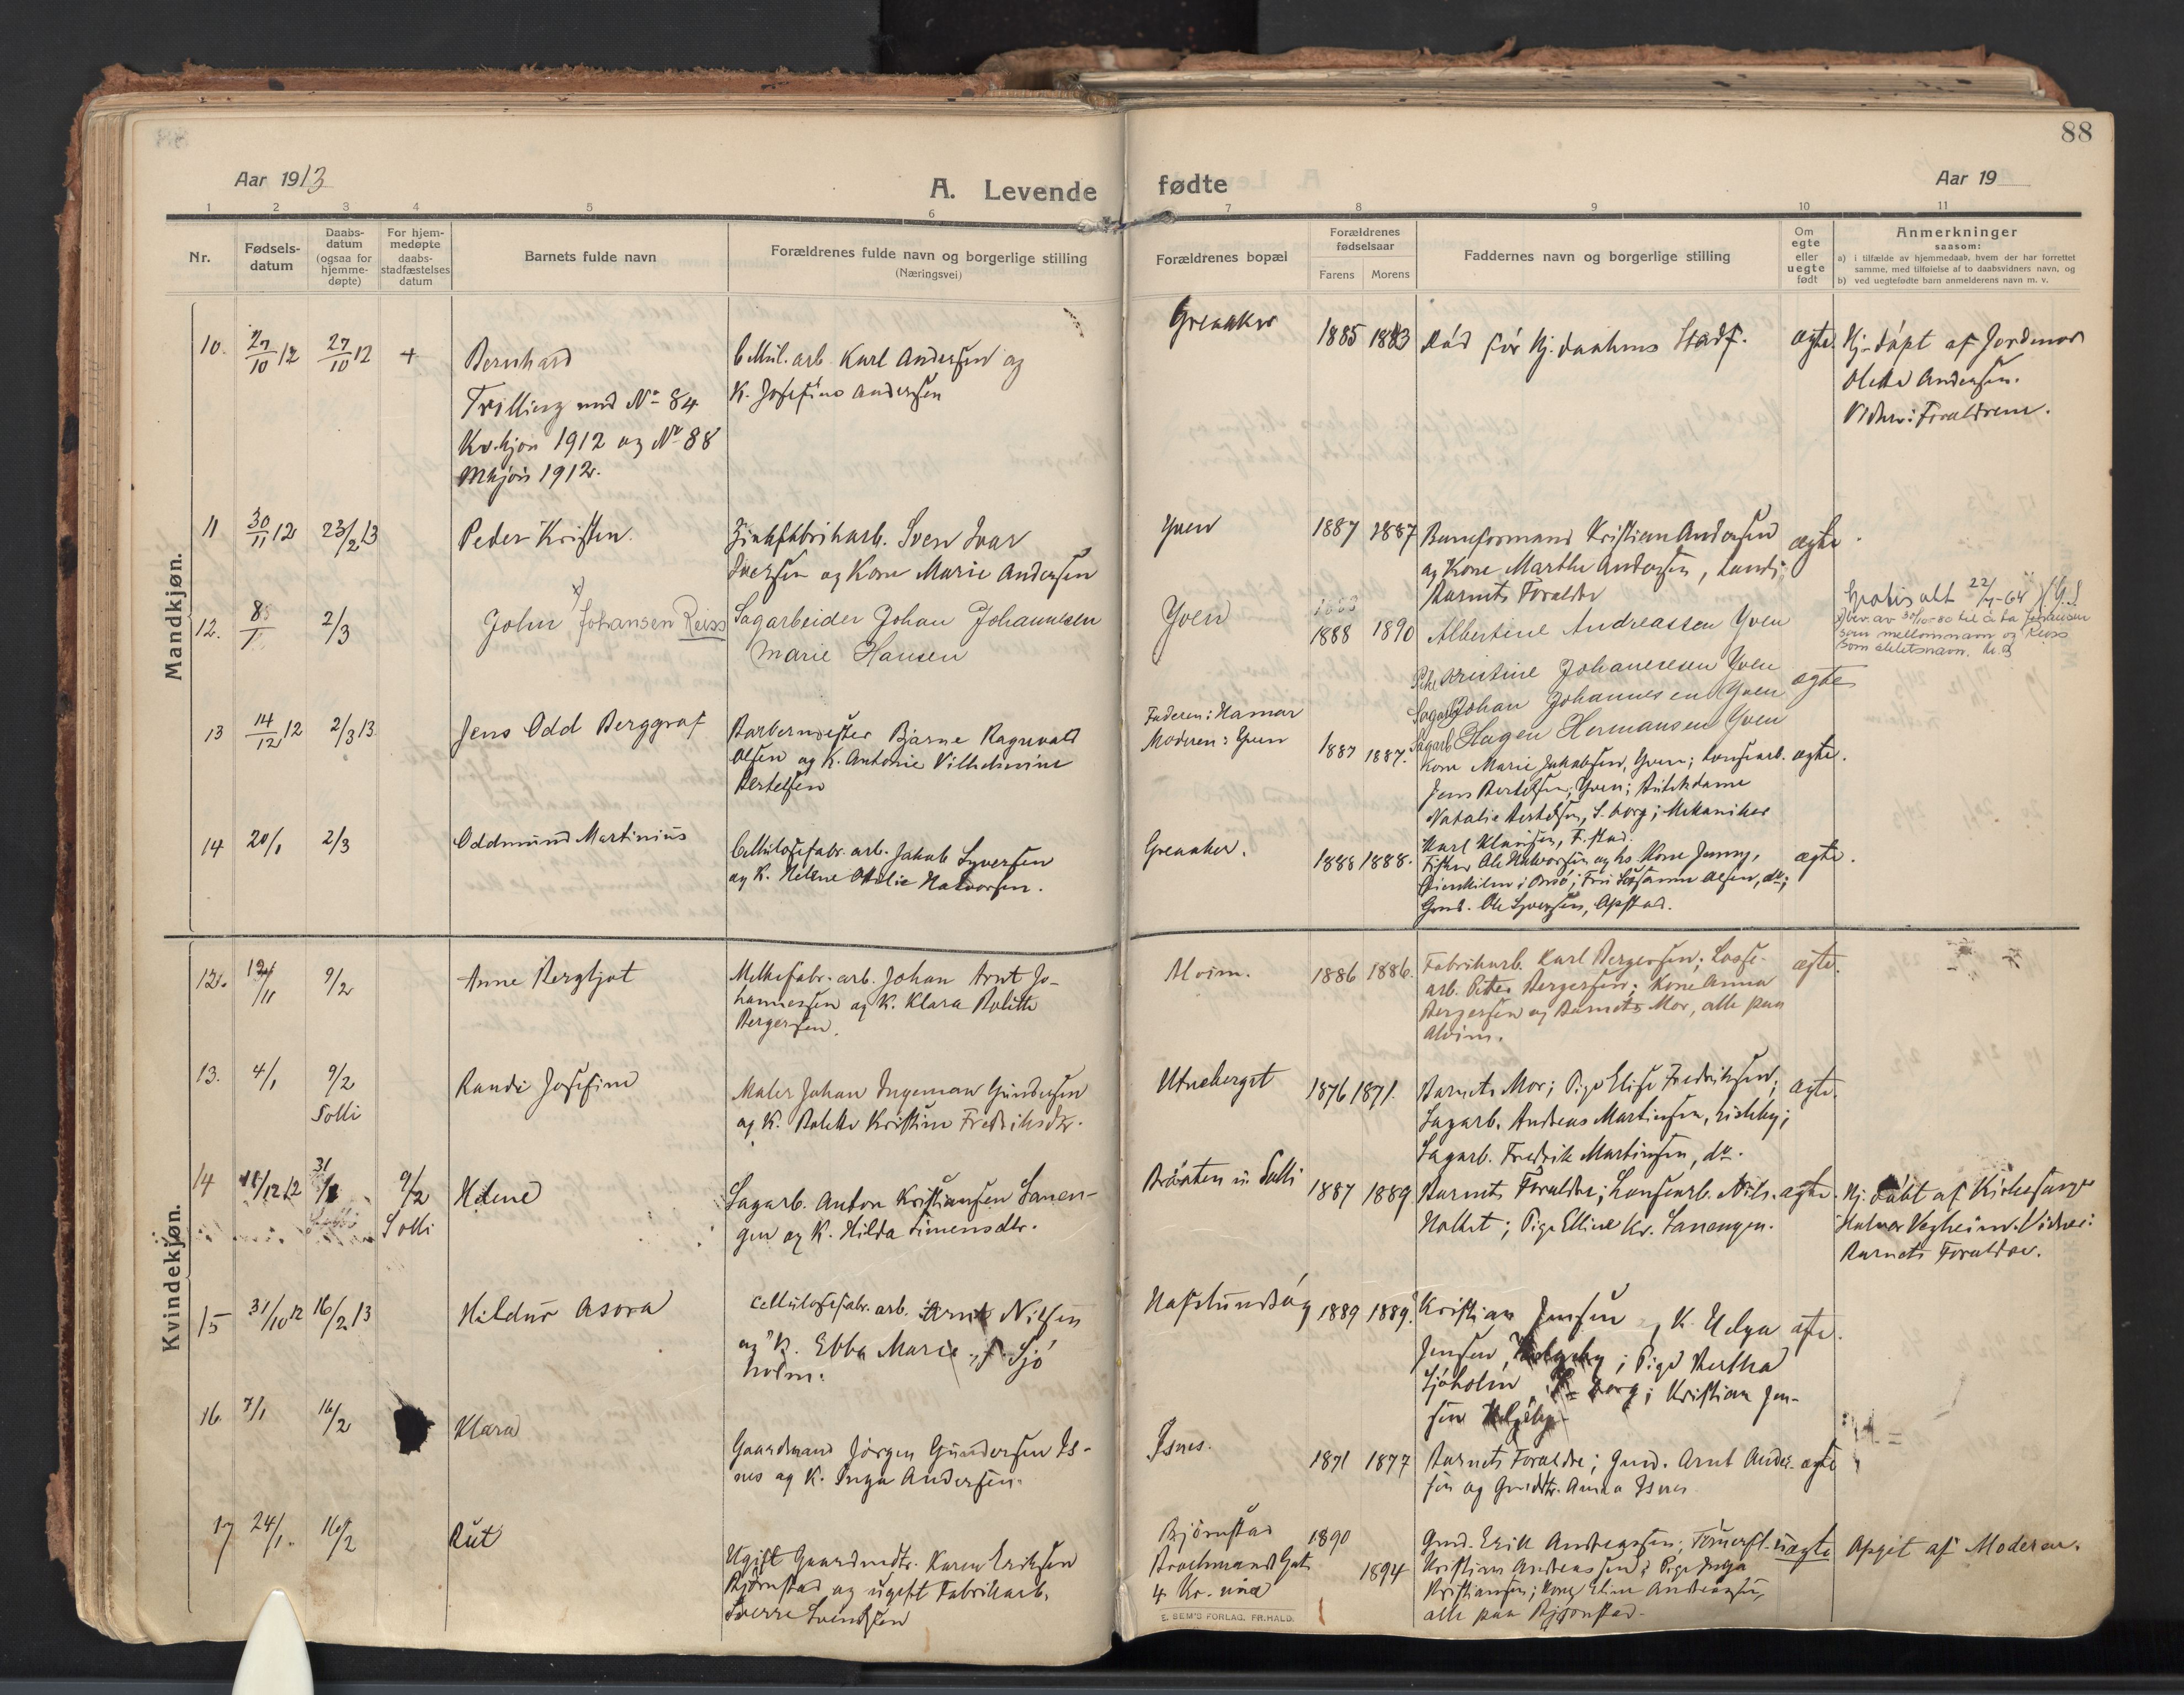 88
Aar 1913
A. Levende fødte
Aar 19
1 2 3 4 5 6 7 8 9 10 11
Nr.
Fødsels-
datum
Daabs-
datum
(ogsaa for
hjemme-
døpte)
For hjem-
medøpte
daabs-
stadfæstelses
datum
Barnets fulde navn
Forældrenes fulde navn og borgerlige stilling
(Næringsvei)
Forældrenes bopæl
Forældrenes
fødselsaar
Farens Morens
Faddernes navn og borgerlige stilling
Om
egte
eller
uegte
født
Anmerkninger
saasom:
a) i tilfælde av hjemmedaab, hvem der har forrettet
samme, med tilføielse af to daabsvidners navn, og
b) ved uegtefødte barn anmelderens navn m. v.
Mandkjøn.
10. 27/10 12 27/10 12 +
Bernhard
Trilling med No 84
Kv.kjøn 1912 og No 88
Mkjøn 1912.
Cellul. arb. Karl Andersen og
K. Josefine Andersen
Greaaker
1885 1883
Død før Hj. daabens Stadf.
egte.
Hj. døpt af Jordmor
Olette Andersen.
Vidner: Forældrene.
11 30/11 12 23/2 13
Peder Kristen.
Zinkfabrikarb. Sven Ivar
Iversen og Kone Marie Andersen
Yven
1887 1887
Baneformand Kristian Andersen
og Kone Marthe Andersen, Lande;
Barnets Forældre
egte.
12. 8/1 2/3
John x) Johansen Reiss
Sagarbeider Johan Johannesen
Marie Hansen
Yven
1888 1890
Albertine Andreassen Yven
Pike Kristine Johannesen Yven
Sagarb Johan Johannesen Yven
Sagarb Hagen Hermansen Yven
egte
Gratisatt 22/7-64
x) bev. av 30/10-80 til å ta Johansen
som mellomnavn og Reiss
som slektsnavn.
13 14/12 12 2/3 13.
Jens Odd Berggraf
Barbermester Bjarne Ragnvald
Olsen og K. Antonie Vilhelmine
Bertelsen
Faderen: Hamar
Moderen: Yven
1887 1887.
Kone Marie Jakobsen, Yven; Landsearb.
Jens Bertelsen, Yven; Butikdame
Natalie Bertelsen, S.borg; Mekaniker
Karl Klausen, F.stad.
egte.
14 20/1 2/3
Oddmund Martinius
Cellulosefabr. arb. Jakob Syversen
og K. Helene Otilie Halvorsen.
Greaaker.
1888 1888.
Fisker Ole Halvorsen og hs. Kone Jenny,
Gjenkilen i Onsö; Fru Susanne Olsen, do;
Grnd. Ole Syversen, Opstad.
egte.
Kvindekjøn.
12. 12/11 9/2
Anne Bergljot
Melkefabr. arb. Johan Arnt Jo-
hannessen og K. Klara Bolette
Bergersen.
Alvim.
1886 1886.
Fabrikarb. Karl Bergersen; Losse-
arb. Peter Bergersen; Kone Anna
Bergersen og Barnets Mor, alle paa
Alvim.
egte.
13. 4/1 9/2
Solli
Randi Josefine
Maler Johan Ingeman Gundersen
og K. Bolette Kristine Fredriksdtr.
Utneberget
1876 1871.
Barnets Mor; Pige Elise Fredriksen;
Sagarb. Andreas Martinsen, Lisleby;
Sagarb. Fredrik Martinsen, do.
egte.
14 11/12 12 31/1 9/2
Solli
Helene
Sagarb. Anton Kristiansen Sanen-
gen og K. Hilda Simensdtr.
Braaten i Solli
1887 1889.
Barnets Forældre; Landsearb. Nils
Holtet; Pige Elline Kr. Sanengen.
egte.
Hj. døbt af Kirkesanger
Halvor Vegheim. Vidner:
Barnets Forældre.
15 31/10 12 16/2 13
Hildur Asora
Cellulosefabr. arb. Arnt Nilsen
og K. Ebba Marie, f. Sjö
holm.
Hafslundsög
1889 1889.
Kristian Jensen, K. Helga
Jensen; Pige Bertha
Sjöholm; Kristian Jen-
sen
egte.
16. 7/1 16/2
Klara
Gaardmand Jörgen Gundersen Is-
nes og K. Inga Andersen.
Isnes.
1871 1877
Barnets Forældre; Gmd. Arnt Ander-
sen og Gmdstr. Anna Isnes
egte
17 24/1 16/2
Rut
Ugift Gaardmdtr. Karen Eriksen
Bjørnstad og ugift Fabrikarb.
Sverre Svendsen
Bjørnstad
Brochmands Gat.
4 Kr.ania
1890
1894
Gmd. Erik Andreassen;
Kristian Andreassen; Pige Inga
Kristiansen; Kone Eline Andreassen,
alle paa Bjørnstad.
uegte
Opgit af Moderen.
E. SEM'S FORLAG, FR.HALD.